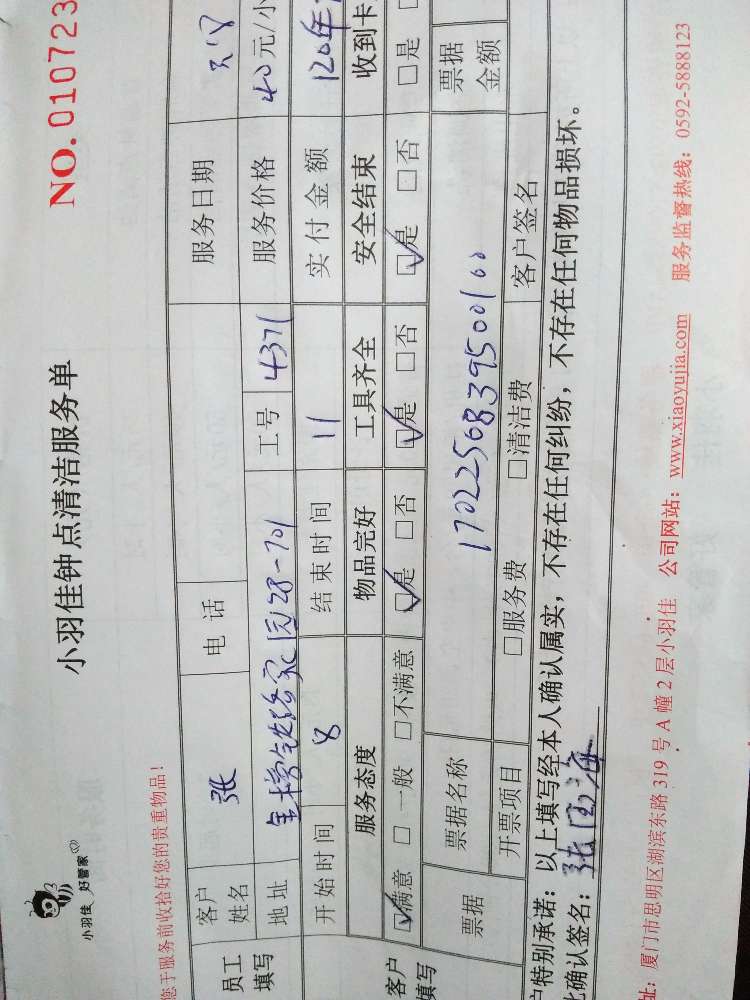 小羽佳 好管家
小羽佳钟点清洁服务单
NO. 010723
您于服务前收拾好您的贵重物品！
员工填写 客户姓名 张 电话 服务日期
地址 金榜铁路家园28-701 工号 4371 服务价格 40元/小
开始时间 8 结束时间 11 实付金额 120年
客户填写 服务态度 物品完好 工具齐全 安全结束 收到卡
☑满意 □一般 □不满意 ☑是 □否 ☑是 □否 ☑是 □否 □是
票据 票据名称 170225683950010 0 票据金额
开票项目 □服务费 □清洁费 客户签名
户特别承诺：以上填写经本人确认属实，不存在任何纠纷，不存在任何物品损坏。
确认签名：张国海
址：厦门市思明区湖滨东路 319 号 A 幢 2 层小羽佳 公司网站：www.xiaoyujia.com 服务监督热线：0592-5888123